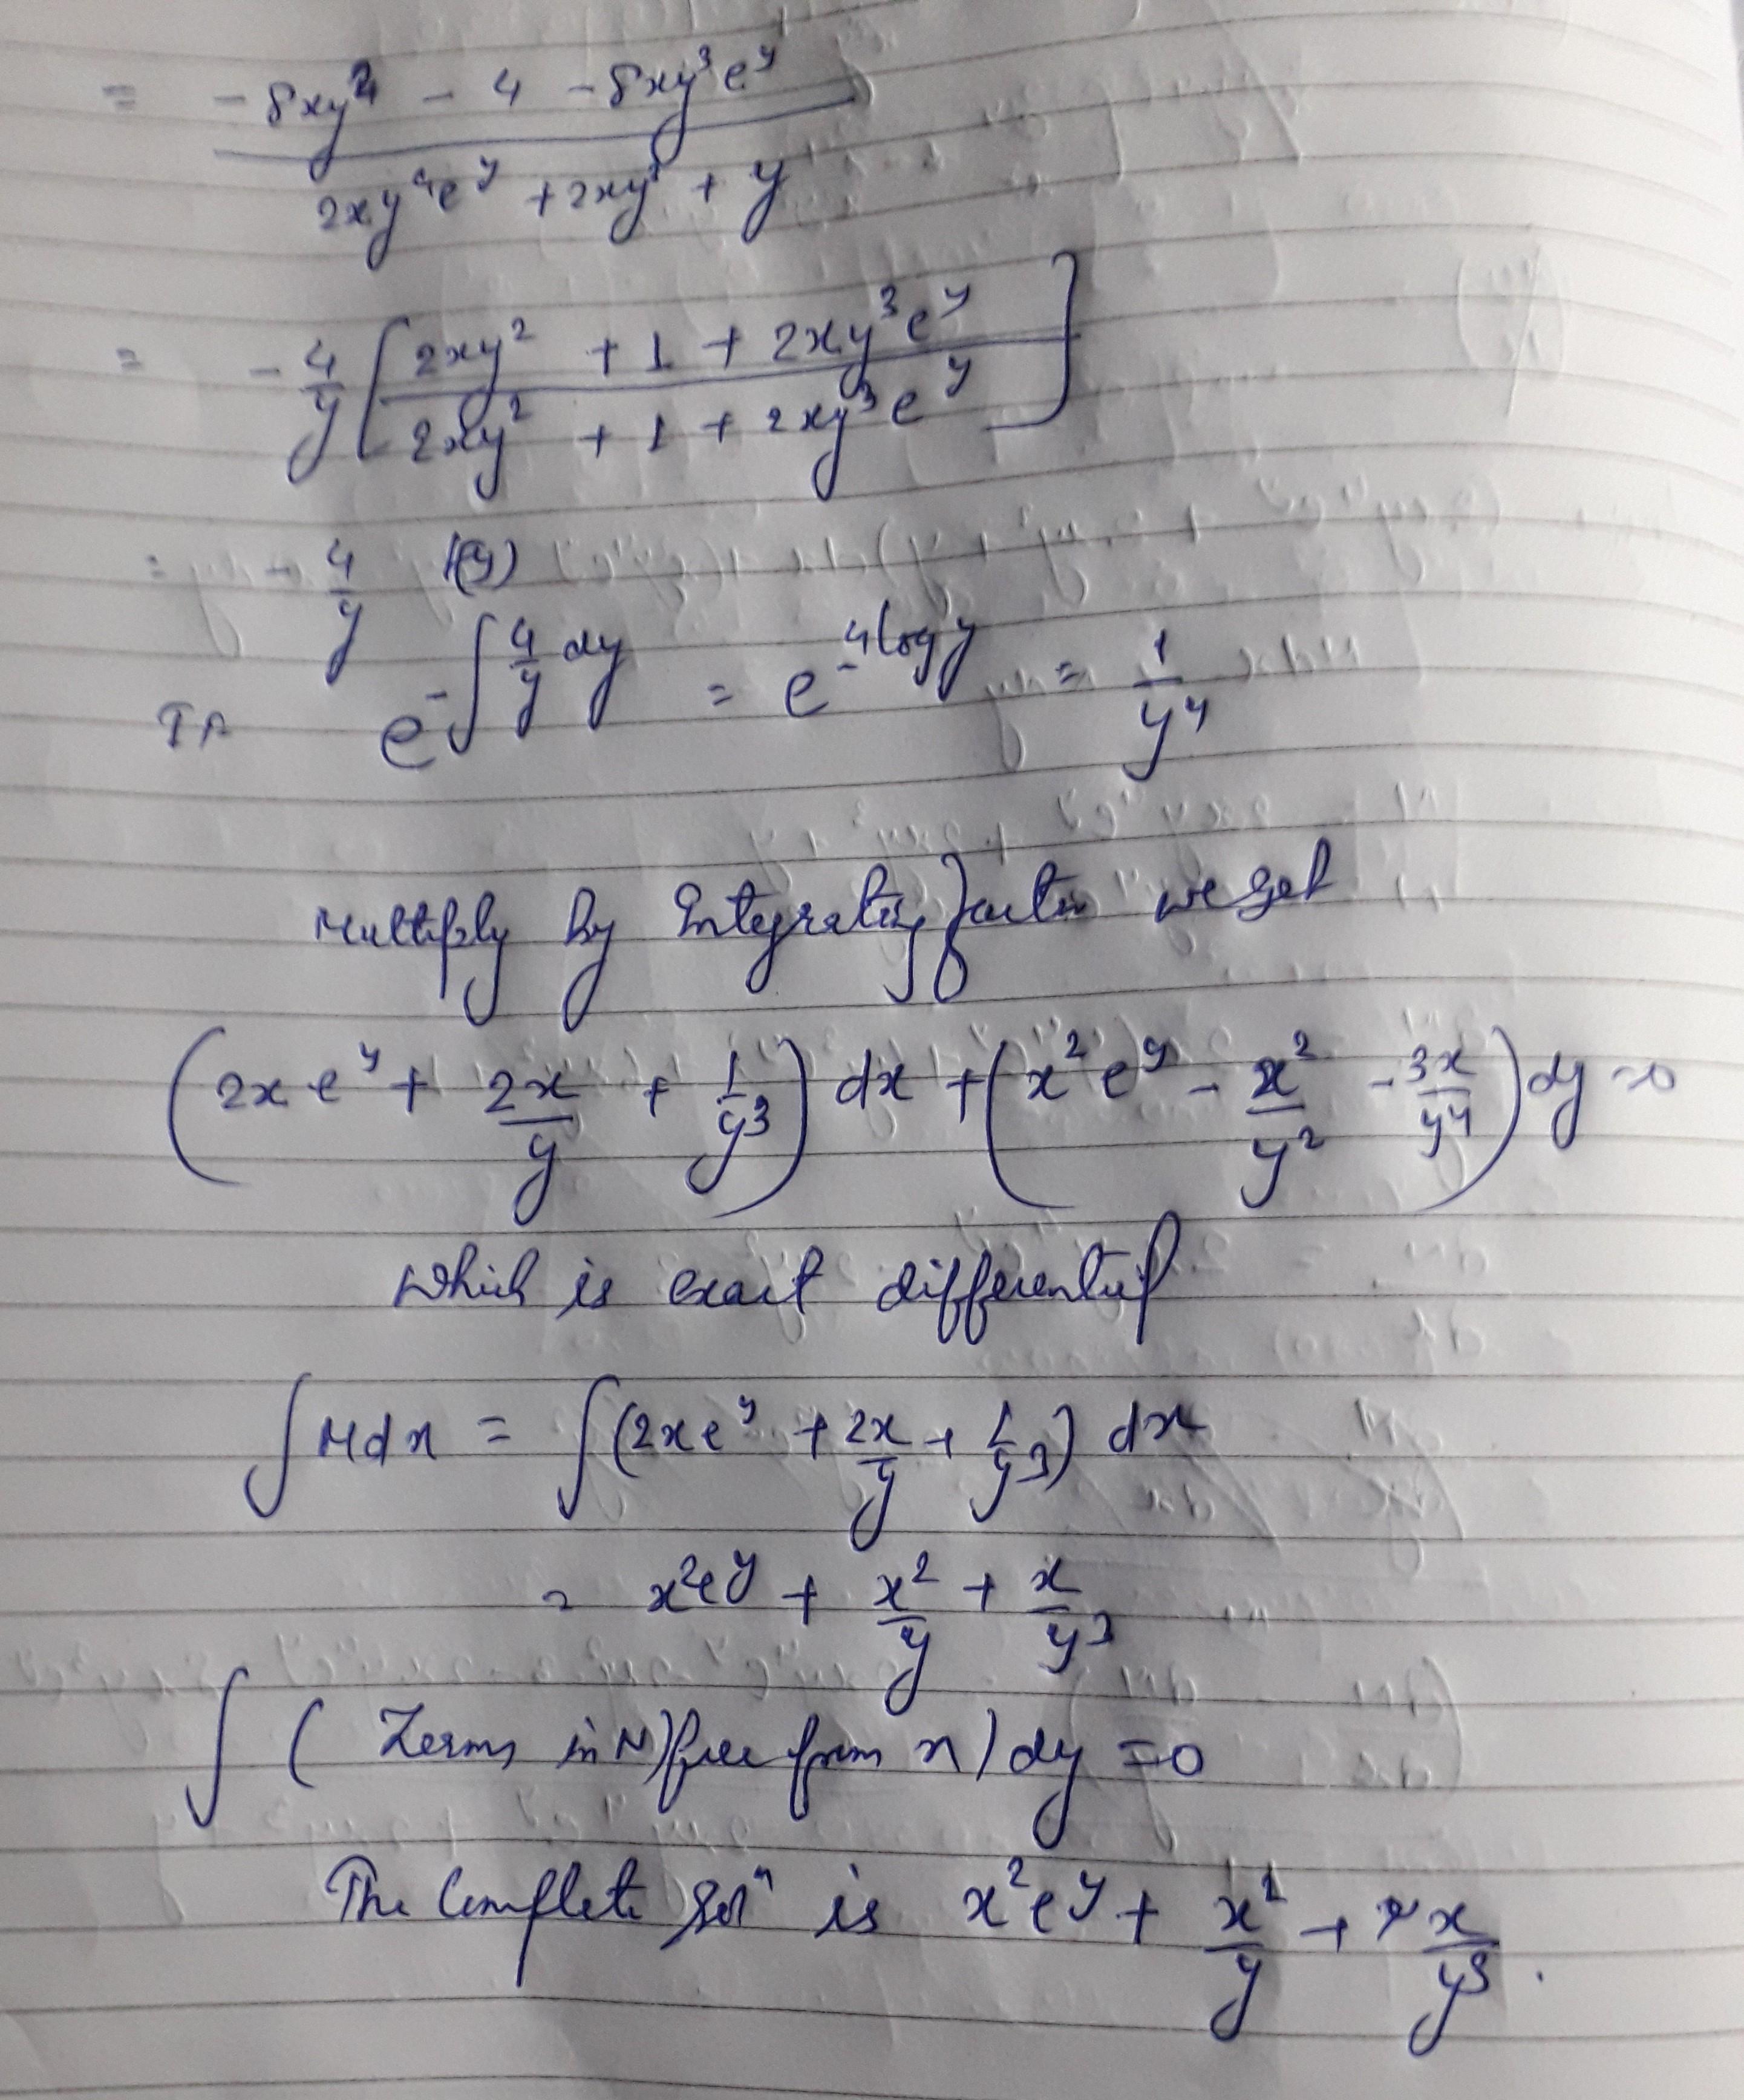 = (-8xy² - 4 - 8xy³e^y) / (2xy⁴e^y + 2xy³ + y)
= -4/y [ (2xy² + 1 + 2xy³e^y) / (2xy² + 1 + 2xy³e^y) ]
= -4/y f(y)
IF e^(-∫ 4/y dy) = e^(-4 log y) = 1/y⁴
Multiply by Integrating factor we get
(2xe^y + 2x/y + 1/y³) dx + (x²e^y - x²/y² - 3x/y⁴) dy = 0
which is exact differential
∫Mdx = ∫(2xe^y + 2x/y + 1/y³) dx
= x²e^y + x²/y + x/y³
∫ (Terms in N) free from x) dy = 0
The Complete Solⁿ is x²e^y + x²/y + x/y³.